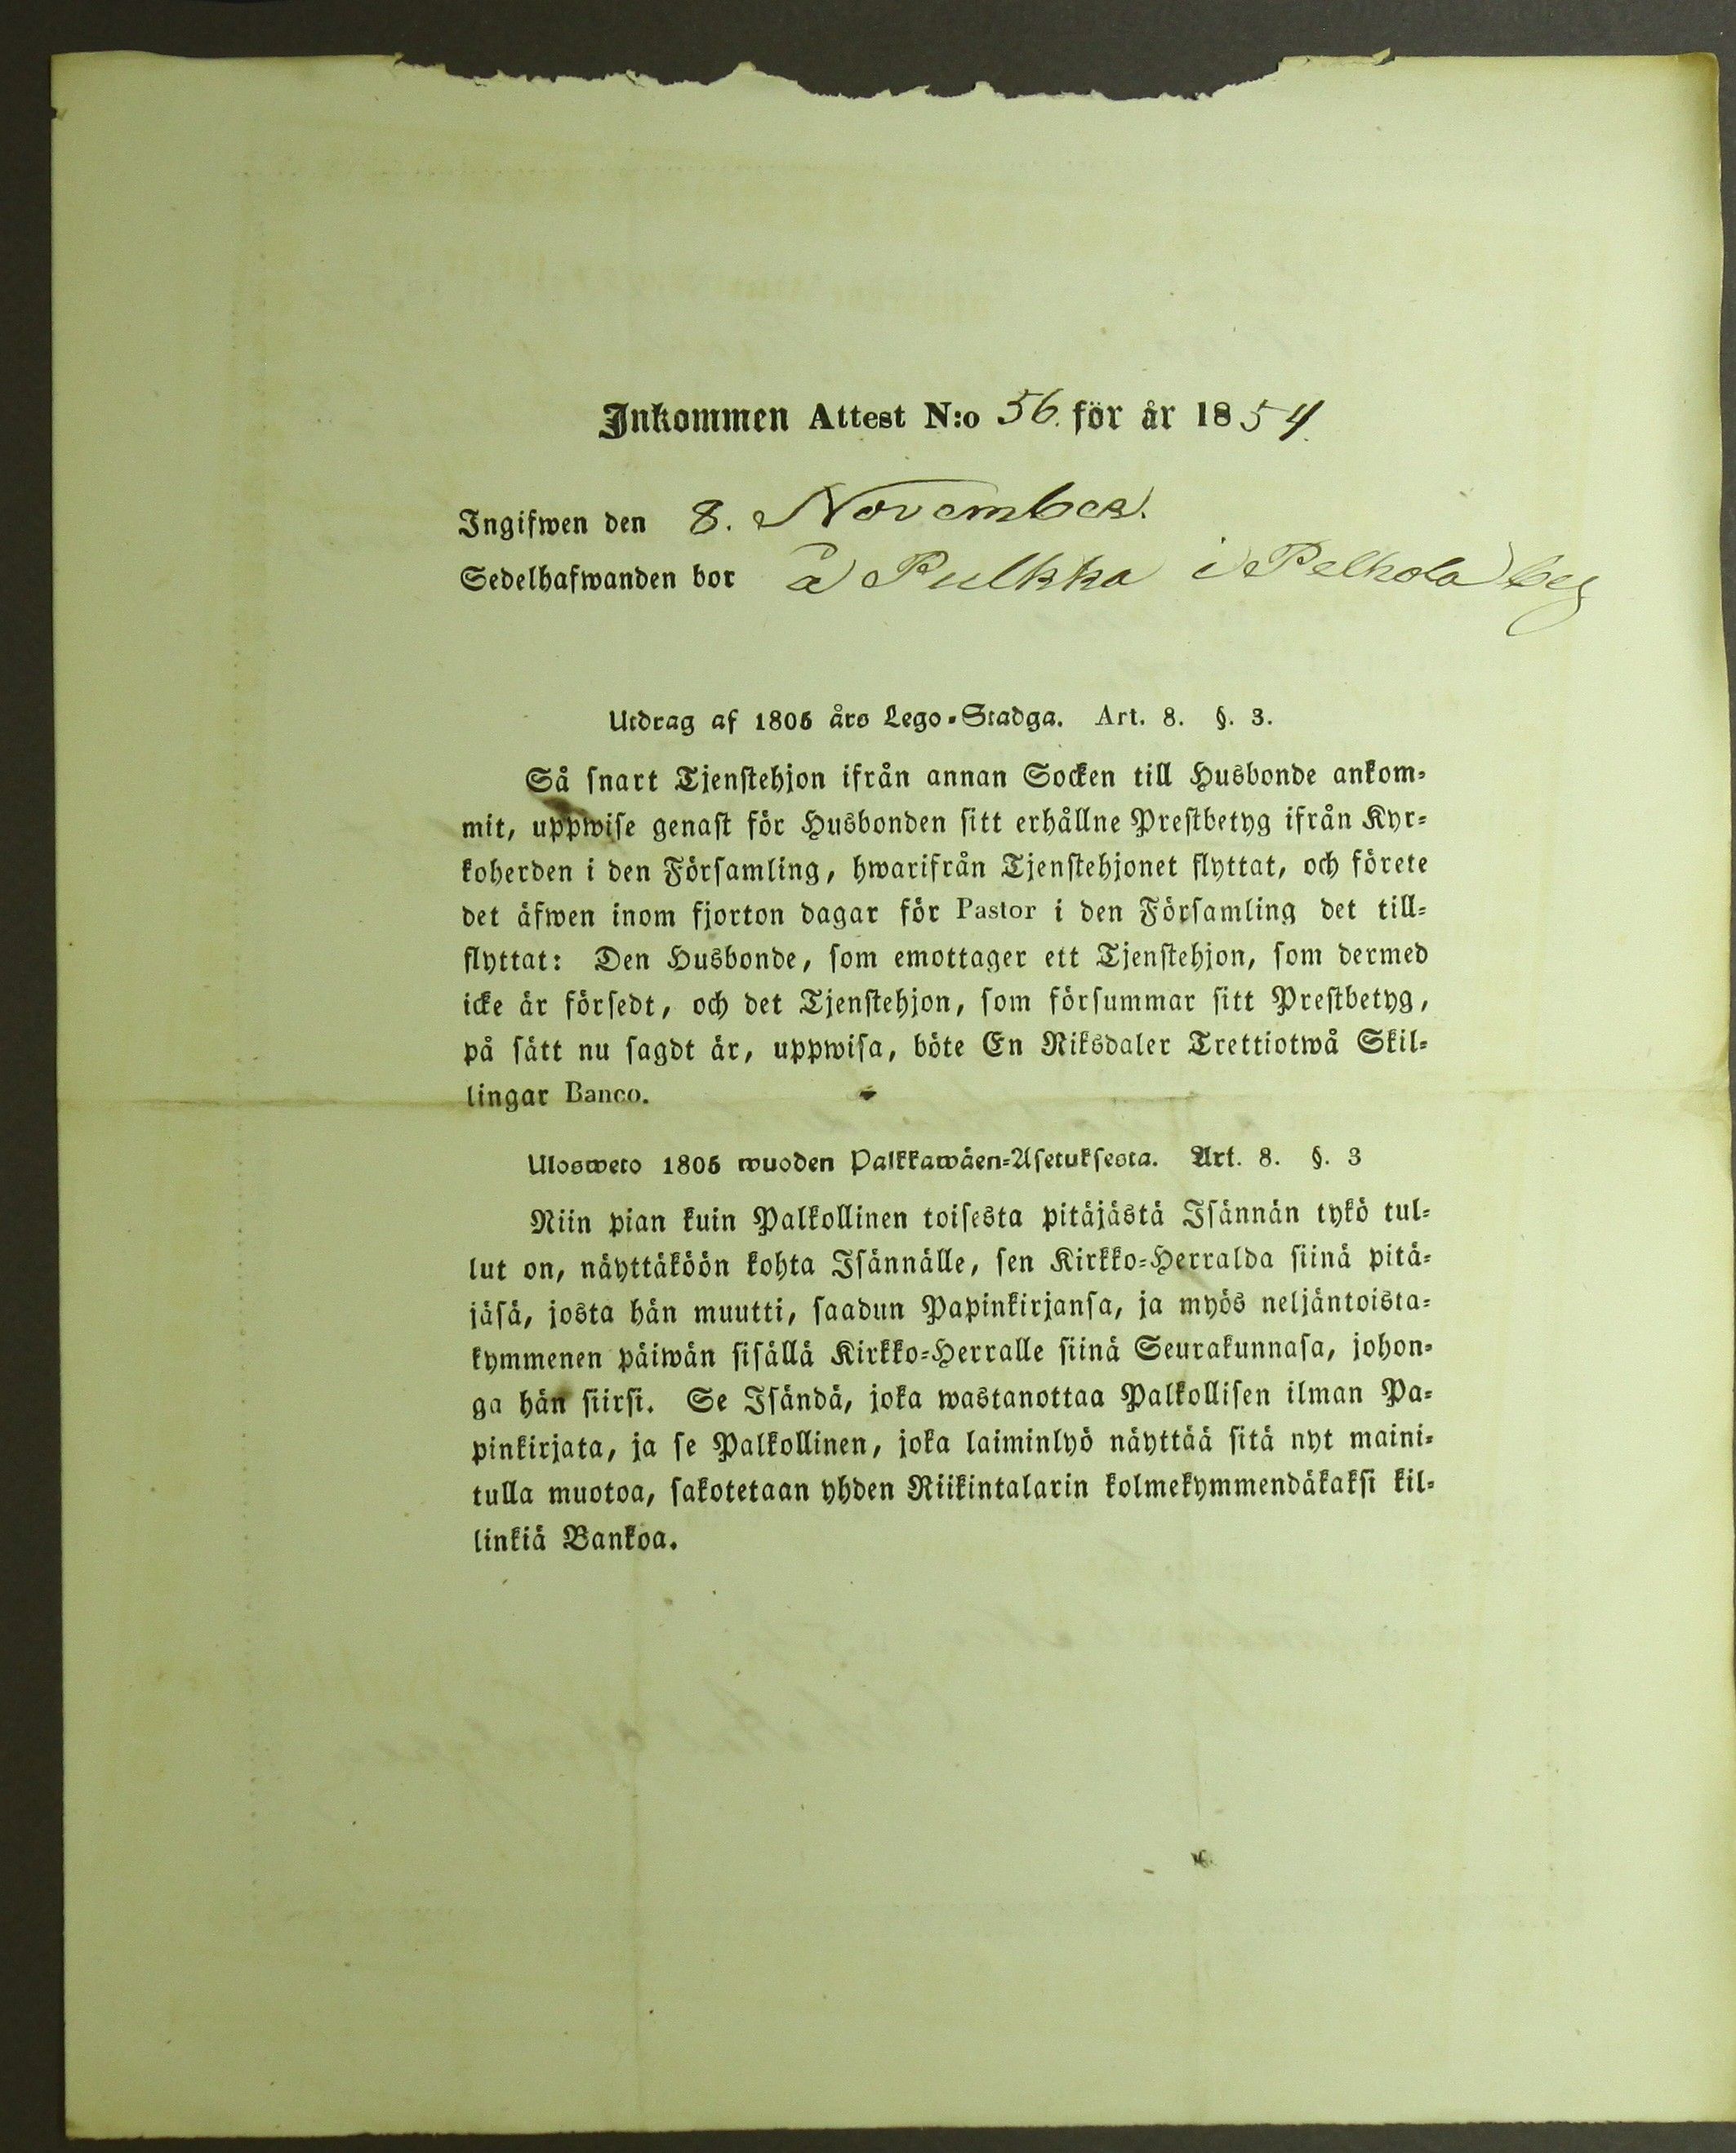 Inkommen Attest N:o 56. för år 1854.
Ingifwen den 8. November.
Sedelhafwanden bor å Pulkka i Pelhola by
Utdrag af 1805 års Lego-Stadga. Art. 8. §. 3.
Så snart Tjenstehjon ifrån annan Socken till Husbonde ankom-
mit, uppwise genast för Husbonden sitt erhållne Prestbetyg ifrån Kyr-
koherden i den Församling, hwarifrån Tjenstehjonet flyttat, och förete
det äfwen inom fjorton dagar för Pastor i den Församling det till-
flyttat: Den Husbonde, som emottager ett Tjenstehjon, som dermed
icke är försedt, och det Tjenstehjon, som försummar sitt Prestbetyg,
på sätt nu sagdt är, uppwisa, böte En Riksdaler Trettiotwå Skil-
lingar Banco.
Ulosweto 1805 wuoden Palkkawäen-Asetuksesta. Art. 8. §. 3
Niin pian kuin Palkollinen toisesta pitäjästä Isännän tykö tul-
lut on, näyttäköön kohta Isännälle, sen Kirkko-Herralda siinä pitä-
jäsä, josta hän muutti, saadun Papinkirjansa, ja myös neljäntoista-
kymmenen päiwän sisällä Kirkko-Herralle siinä Seurakunnasa, johon-
ga hän siirsi. Se Isändä, joka wastanottaa Palkollisen ilman Pa-
pinkirjata, ja se Palkollinen, joka laiminlyö näyttää sitä nyt maini-
tulla muotoa, sakotetaan yhden Riikintalarin kolmekymmendäkaksi kil-
linkiä Bankoa.